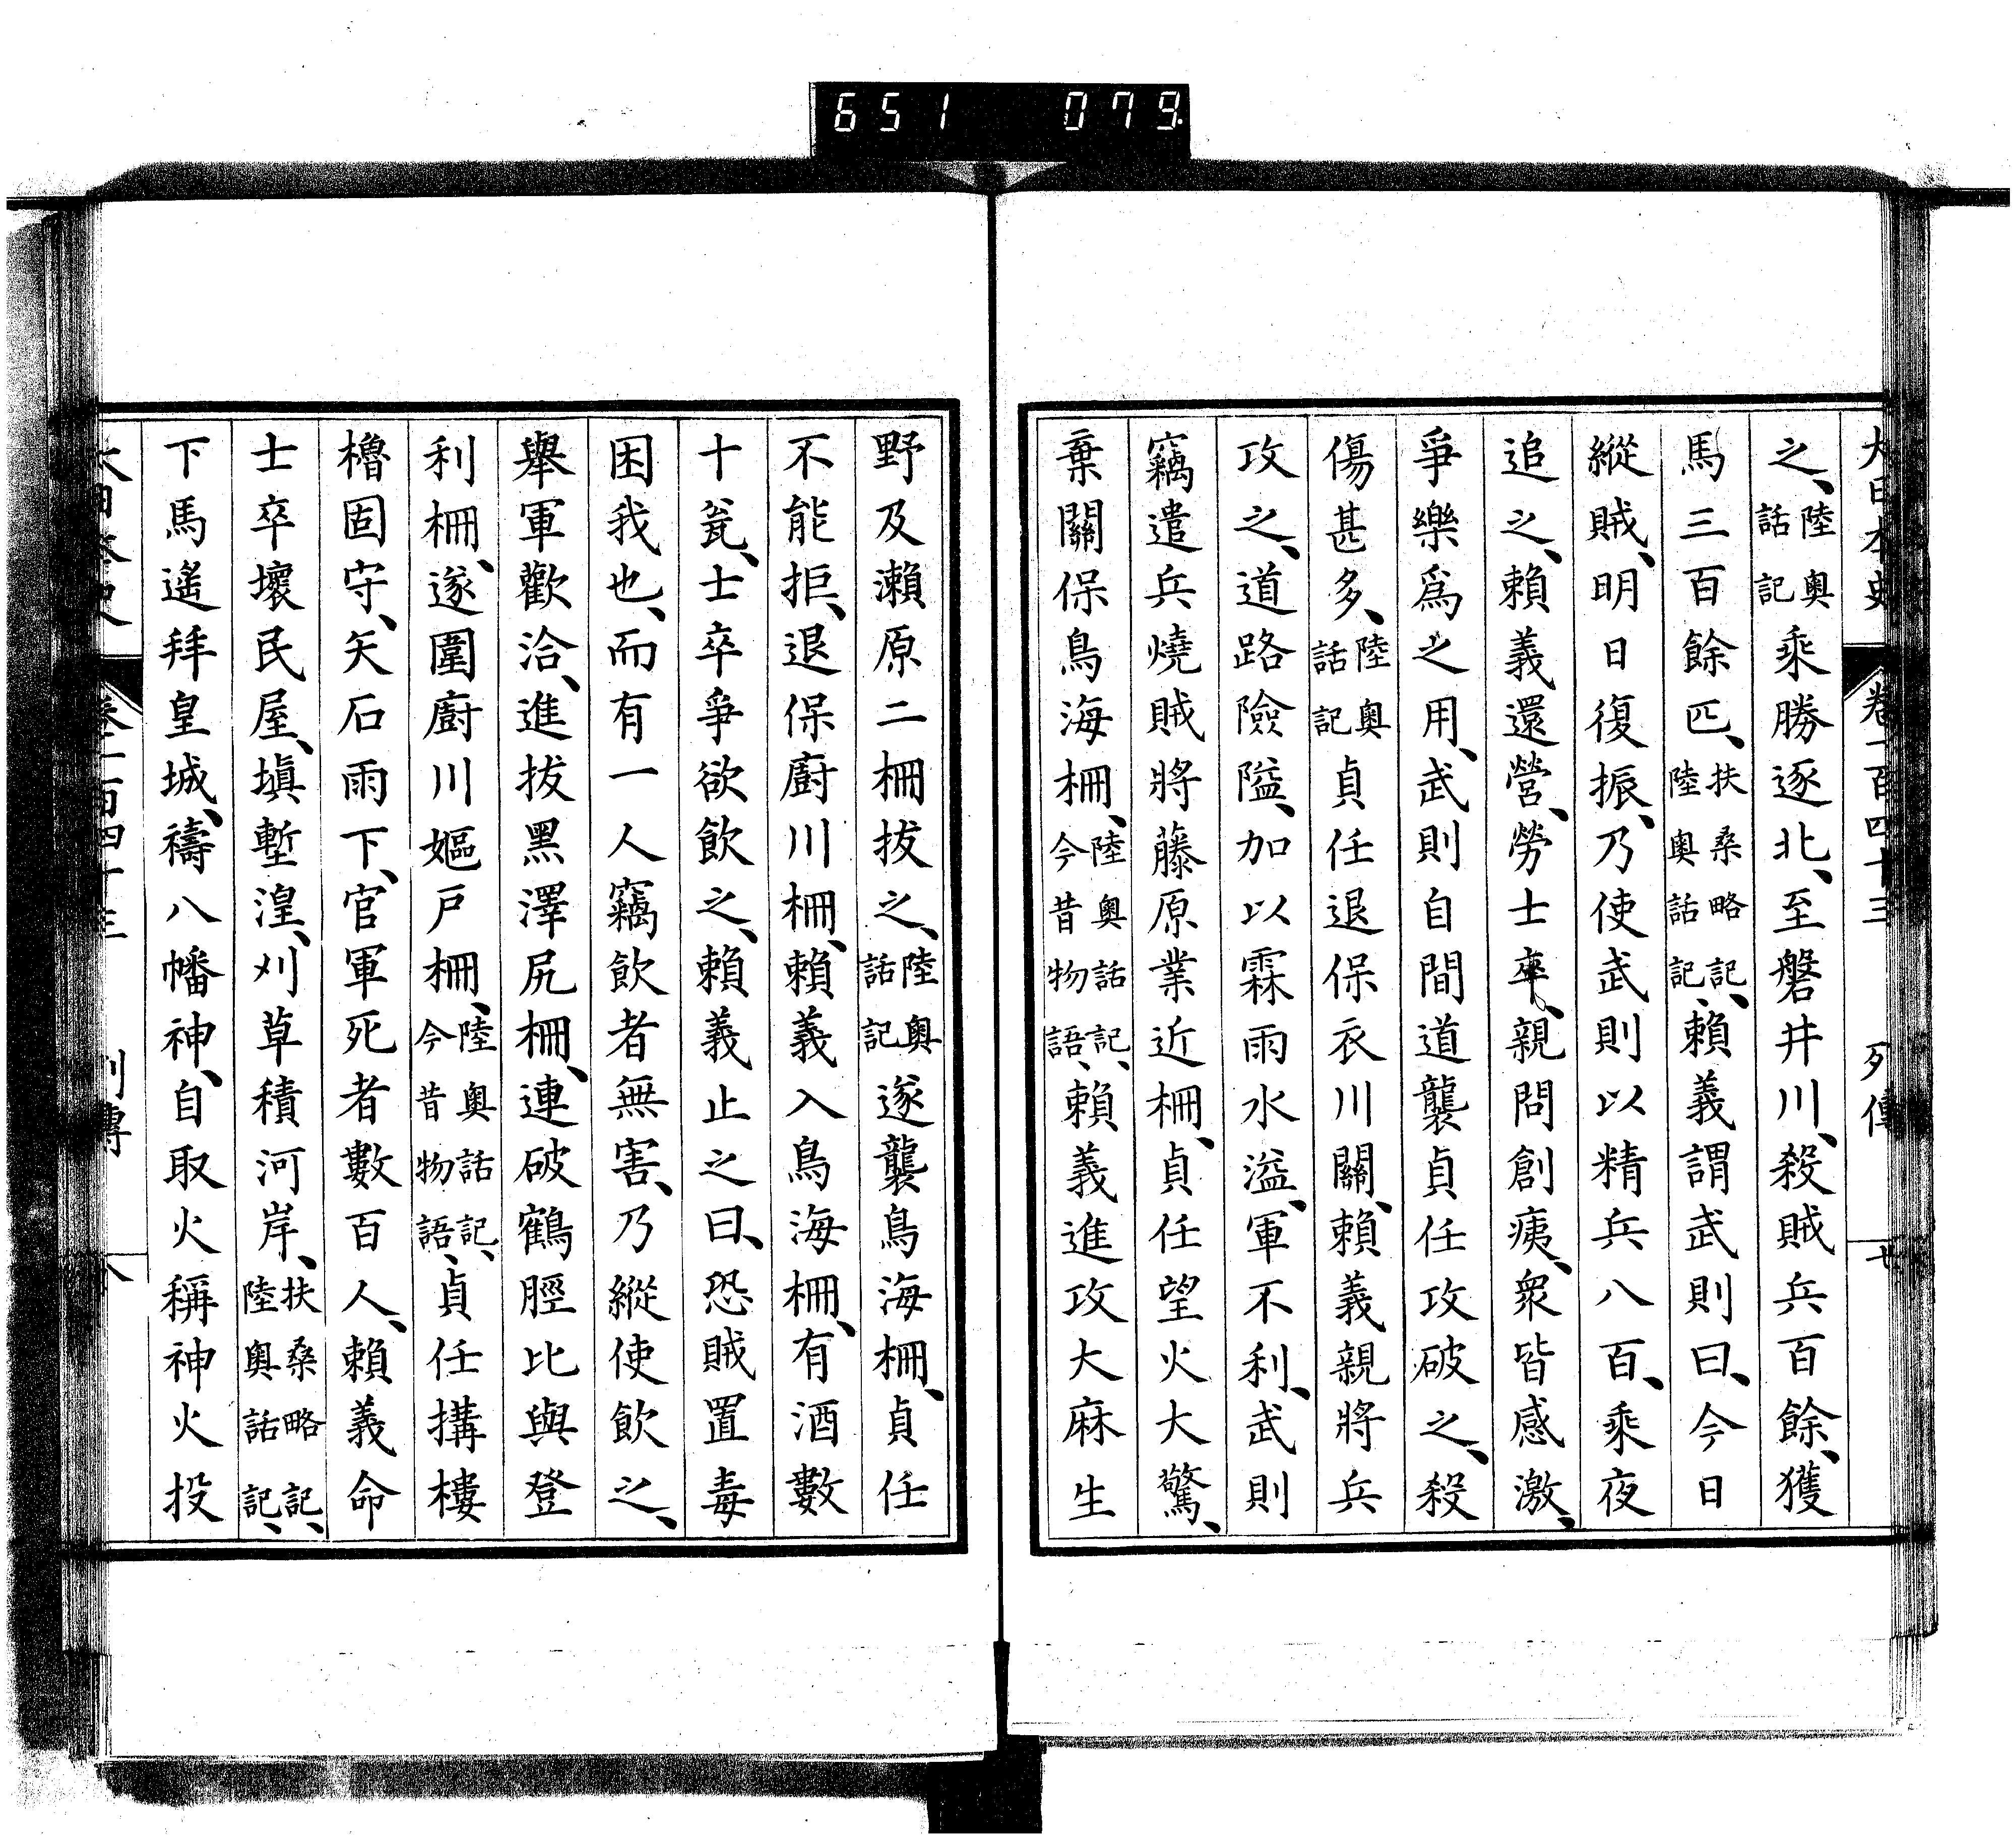 651 079
大日本史 卷一百四十三 列傳
之、陸奧話記乘勝逐北、至磐井川、殺賊兵百餘、獲
馬三百餘匹、扶桑略記、陸奧話記、賴義謂武則曰、今日
縱賊、明日復振、乃使武則以精兵八百、乘夜
追之、賴義還營、勞士卒、親問創痍、衆皆感激、
爭樂爲之用、武則自間道襲貞任攻破之、殺
傷甚多、陸奧話記貞任退保衣川關、賴義親將兵
攻之、道路險隘、加以霖雨水溢、軍不利、武則
竊遣兵燒賊將藤原業近柵、貞任望火大驚、
棄關保鳥海柵、陸奧話記、今昔物語、賴義進攻大麻生
野及瀨原二柵拔之、陸奧話記遂襲鳥海柵、貞任
不能拒、退保廚川柵、賴義入鳥海柵、有酒數
十瓮、士卒爭欲飲之、賴義止之曰、恐賊置毒
困我也、而有一人竊飲者無害、乃縱使飲之、
舉軍歡洽、進拔黑澤尻柵、連破鶴脛比與登
利柵、遂圍廚川嫗戸柵、陸奧話記、今昔物語、貞任搆樓
櫓固守、矢石雨下、官軍死者數百人、賴義命
士卒壞民屋、塡塹湟、刈草積河岸、扶桑略記、陸奧話記、
下馬遙拜皇城、禱八幡神、自取火稱神火投
卷一百四十三 列傳